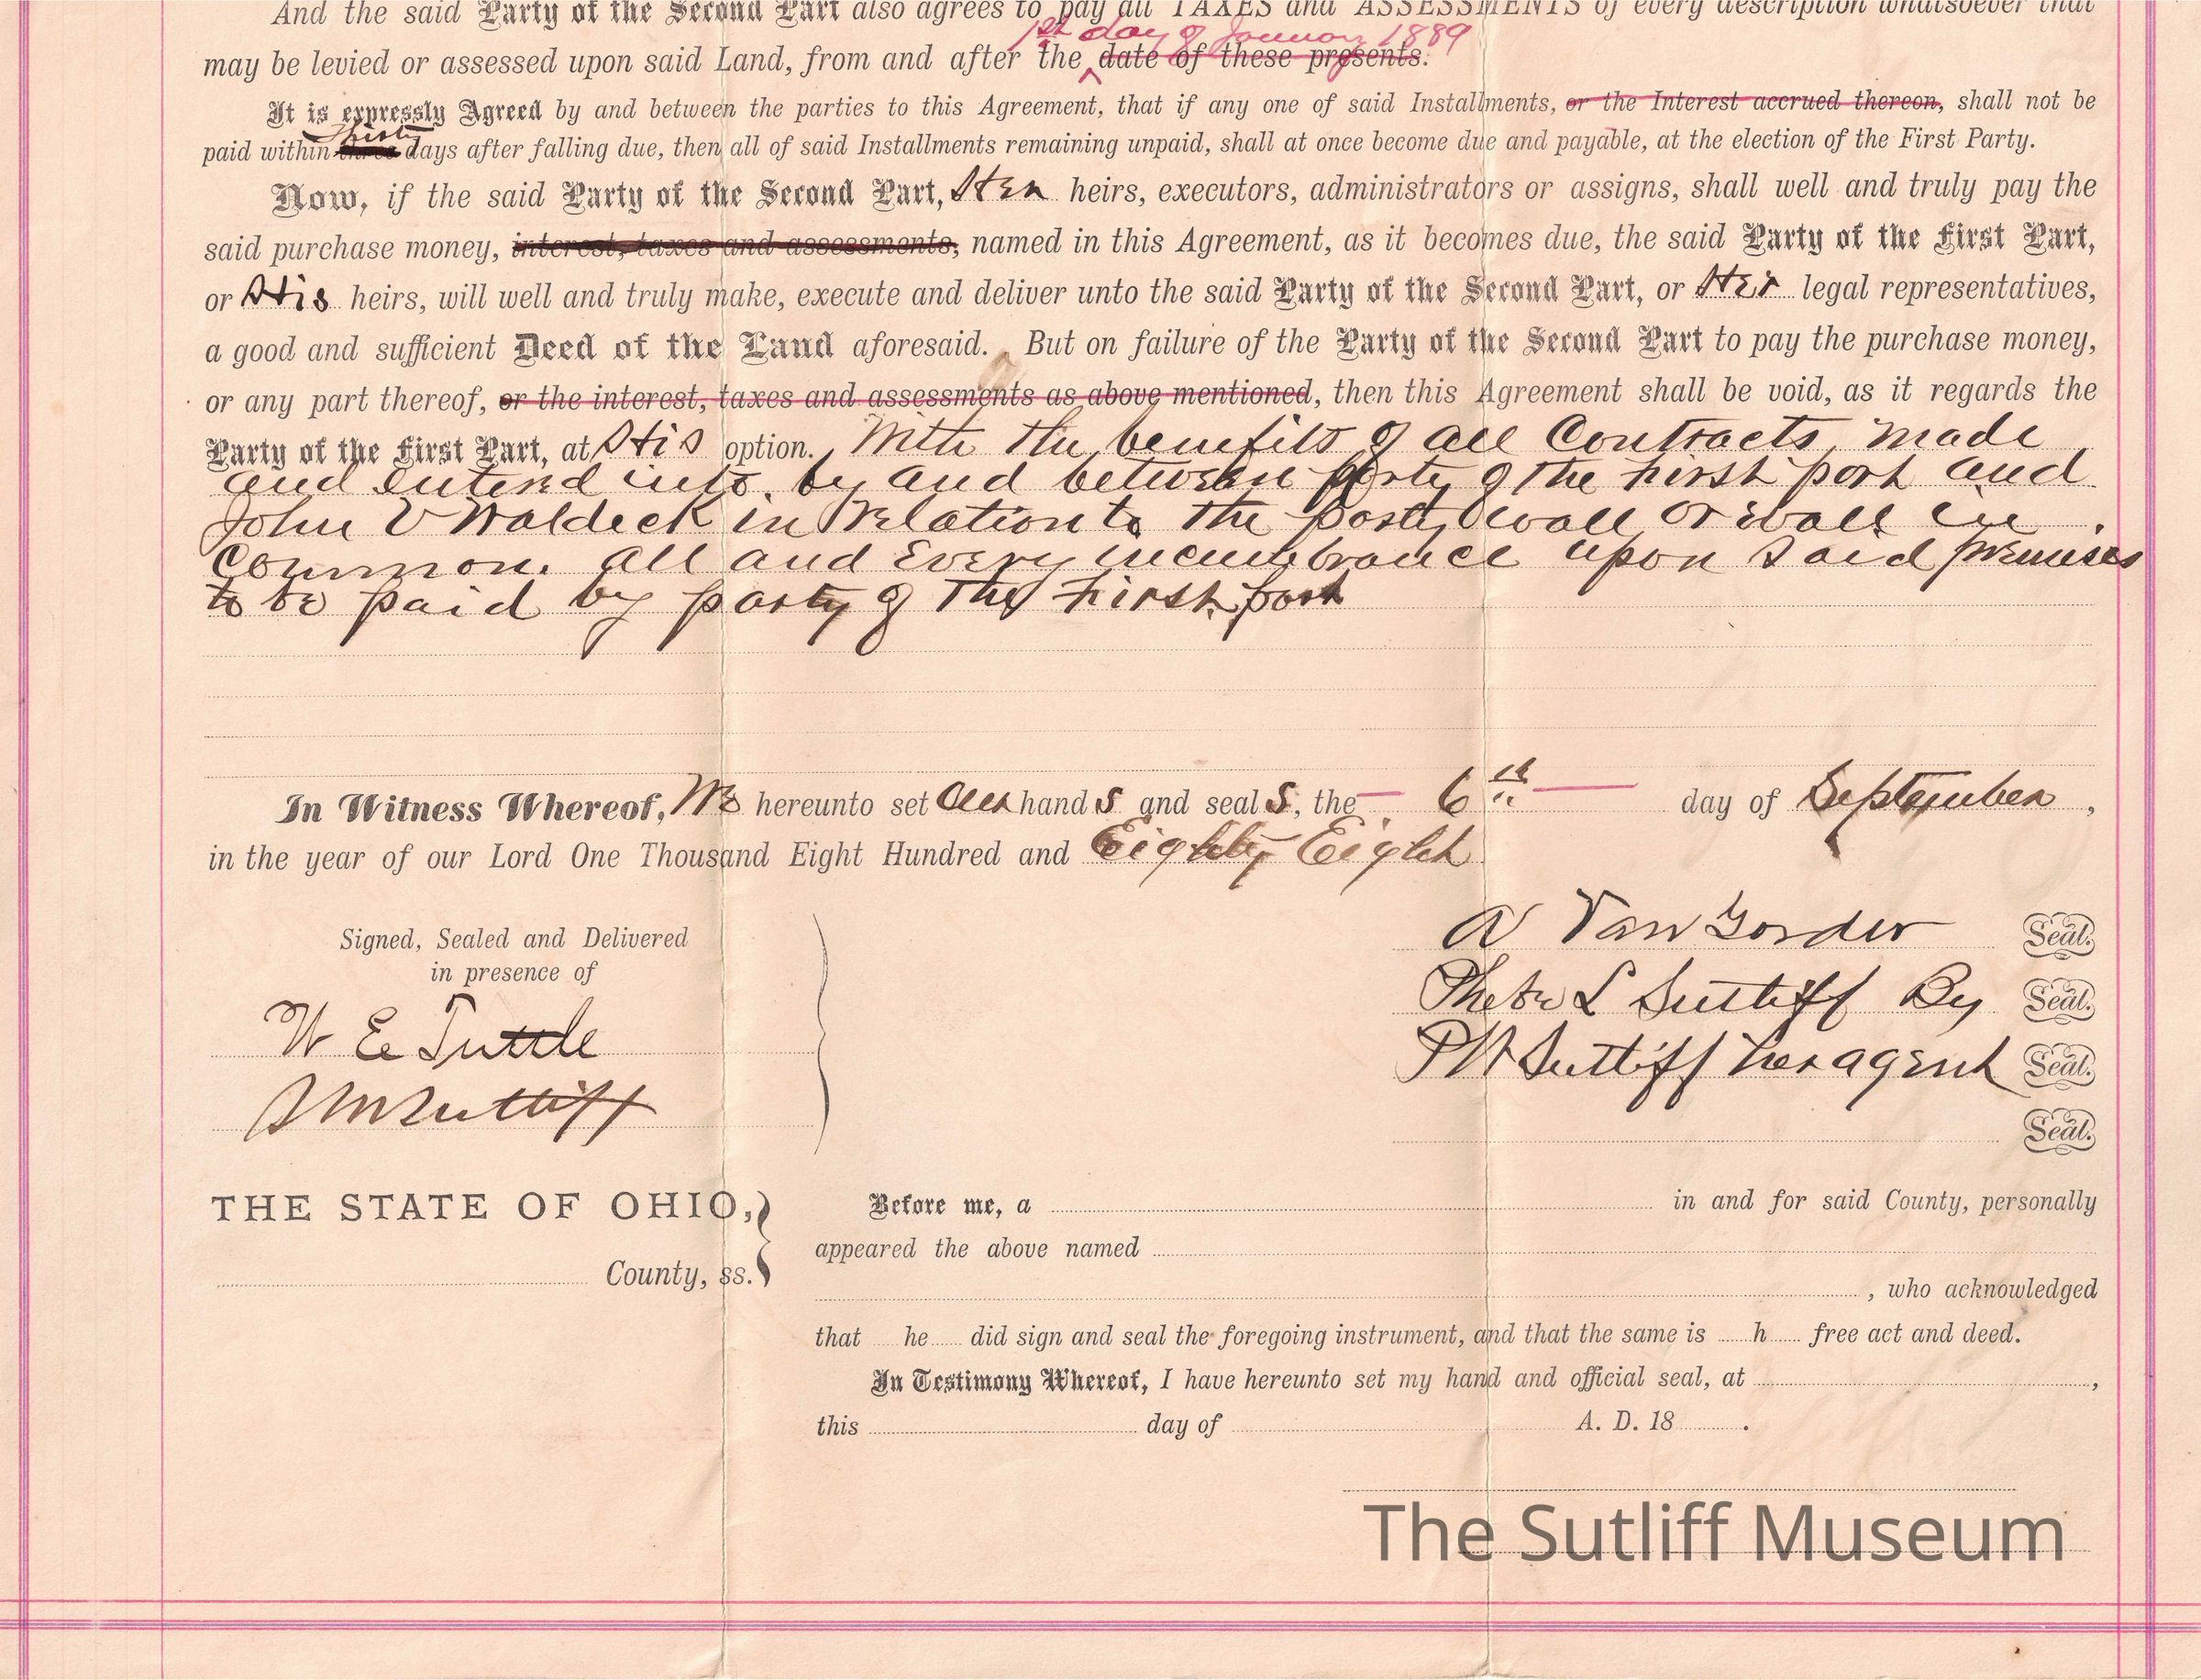 And the said Party of the Second Part also agrees to pay all TAXES and ASSESSMENTS of every description whatsoever that
1st day of January 1889
may be levied or assessed upon said Land, from and after the ^ date of these presents.
It is expressly Agreed by and between the parties to this Agreement, that if any one of said Installments, or the Interest accrued thereon, shall not be
thirty
paid within three days after falling due, then all of said Installments remaining unpaid, shall at once become due and payable, at the election of the First Party.
Now, if the said Party of the Second Part, Her heirs, executors, administrators or assigns, shall well and truly pay the
said purchase money, interest, taxes and assessments, named in this Agreement, as it becomes due, the said Party of the First Part,
or His heirs, will well and truly make, execute and deliver unto the said Party of the Second Part, or Her legal representatives,
a good and sufficient Deed of the Land aforesaid. But on failure of the Party of the Second Part to pay the purchase money,
or any part thereof, or the interest, taxes and assessments as above mentioned, then this Agreement shall be void, as it regards the
Party of the First Part, at His option. With the benefits of all Contracts, made
and entered into. by and between party of the First part and
John V Waldeck in Relation to the party wall or wall in
Common. all and Every incumbrance upon said premises
to be paid by party of the First part
In Witness Whereof, We hereunto set our hands and seals, the 6th day of September,
in the year of our Lord One Thousand Eight Hundred and Eighty Eight
Signed, Sealed and Delivered
in presence of
W E Tuttle
S M Sutliff
A Van Gorder Seal.
Phebe L Sutliff By Seal.
P W Sutliff her agent Seal.
Seal.
THE STATE OF OHIO,
County, ss.
Before me, a in and for said County, personally
appeared the above named
, who acknowledged
that he did sign and seal the foregoing instrument, and that the same is h free act and deed.
In Testimony Whereof, I have hereunto set my hand and official seal, at ,
this day of A. D. 18 .
The Sutliff Museum